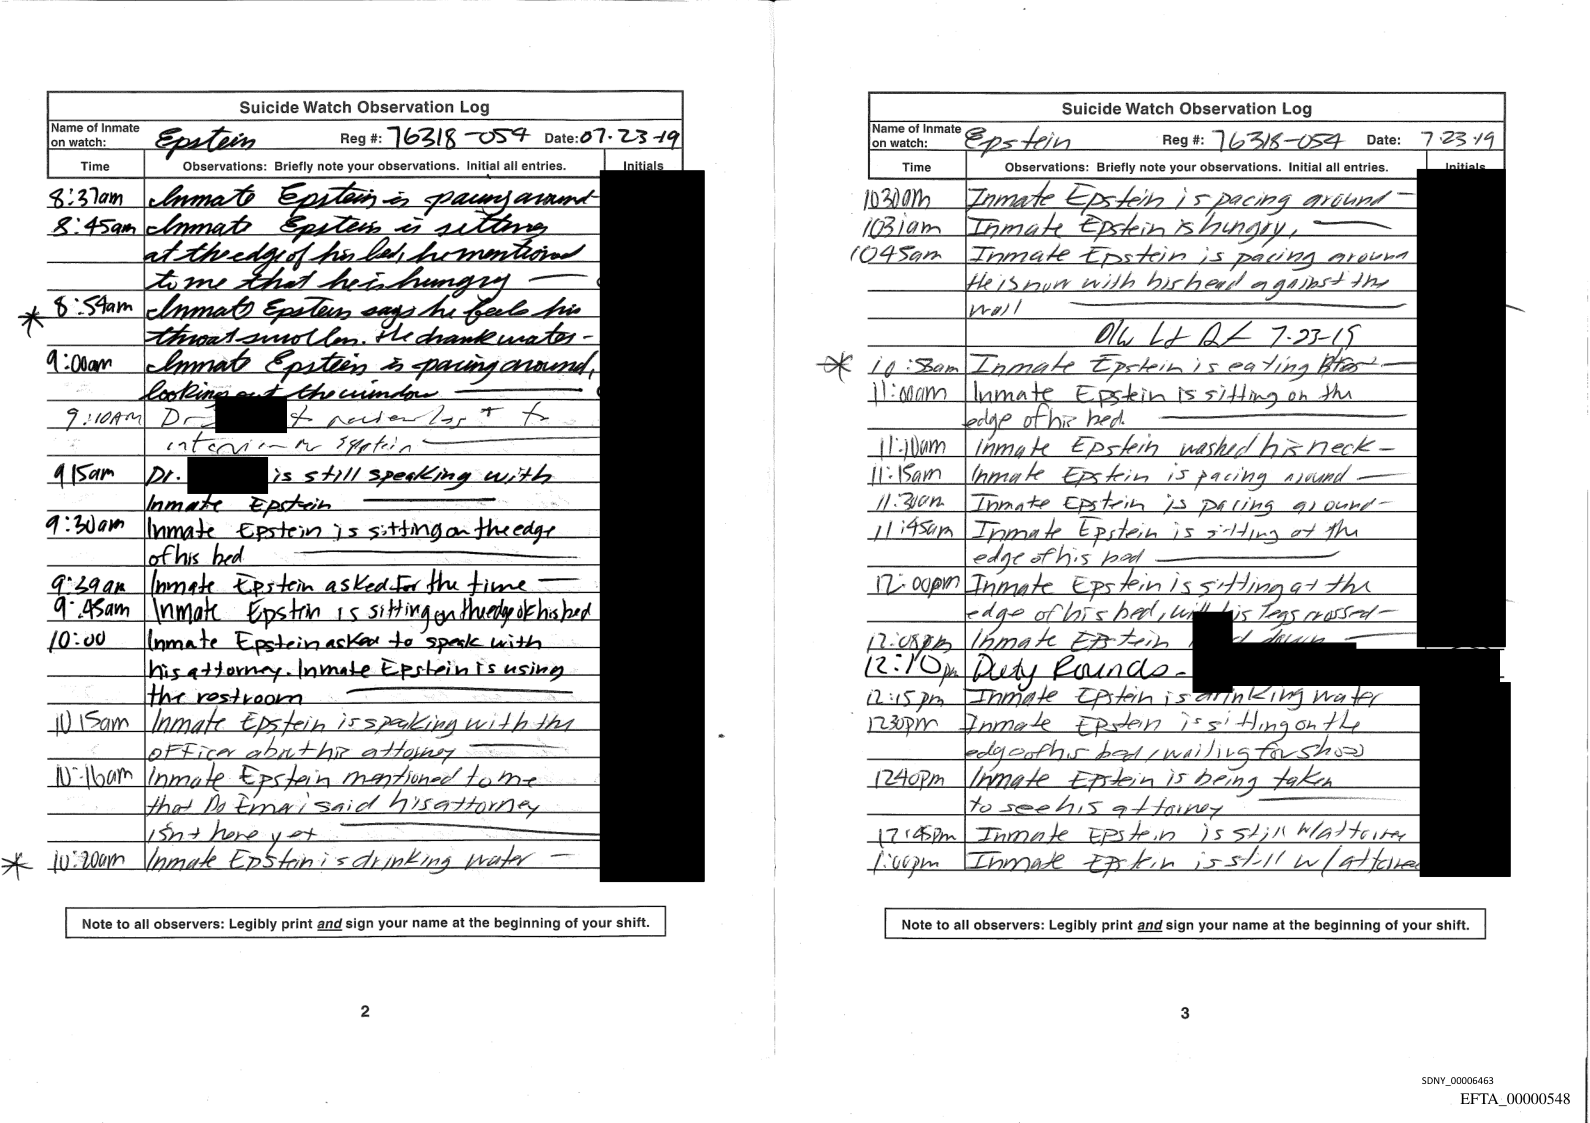 Suicide Watch Observation Log
Name of Inmate on watch: Epstein Reg #: 76318-054 Date: 07-23-19
Time Observations: Briefly note your observations. Initial all entries. Initials
8:37am Inmate Epstein is pacing around
8:45am Inmate Epstein is sitting
at the edge of his bed, he mentioned
to me that he is hungry
8:54am Inmate Epstein says he feels his
throat swollen. He drank water
9:00am Inmate Epstein is pacing around,
looking out the window
9:10AM Dr. review log + to
interview Mr Epstein
915am Dr. is still speaking with
Inmate Epstein
9:30am Inmate Epstein is sitting on the edge
of his bed
9:39am Inmate Epstein asked for the time
9:45am Inmate Epstein is sitting on the edge of his bed
10:00 Inmate Epstein asked to speak with
his attorney. Inmate Epstein is using
the restroom
10:15am Inmate Epstein is speaking with the
officer about his attorney
10:16am Inmate Epstein mentioned to me
that said his attorney
isnt here yet
10:20am Inmate Epstein is drinking water
Note to all observers: Legibly print and sign your name at the beginning of your shift.
2
Suicide Watch Observation Log
Name of Inmate on watch: Epstein Reg #: 76318-054 Date: 7-23-19
Time Observations: Briefly note your observations. Initial all entries. Initials
1030am Inmate Epstein is pacing around
1031am Inmate Epstein is hungry.
1045am Inmate Epstein is pacing around
He is now with his head against the
wall
7-23-19
10:58am Inmate Epstein is eating
11:00am Inmate Epstein is sitting on the
edge of his bed.
11:10am Inmate Epstein washed his neck
11:15am Inmate Epstein is pacing around
11:30am Inmate Epstein is pacing around
11:45am Inmate Epstein is sitting at the
edge of his bed
12:00pm Inmate Epstein is sitting at the
edge of his bed, with his legs crossed
12:08pm Inmate Epstein down
12:10pm Duty Rounds-
12:15pm Inmate Epstein is drinking water
1230pm Inmate Epstein is sitting on the
edge of his bed, waiting for
1240pm Inmate Epstein is being taken
to see his attorney
12:45pm Inmate Epstein is still w/attorney
1:00pm Inmate Epstein is still w/attorney
Note to all observers: Legibly print and sign your name at the beginning of your shift.
3
SDNY_00006463
EFTA_00000548